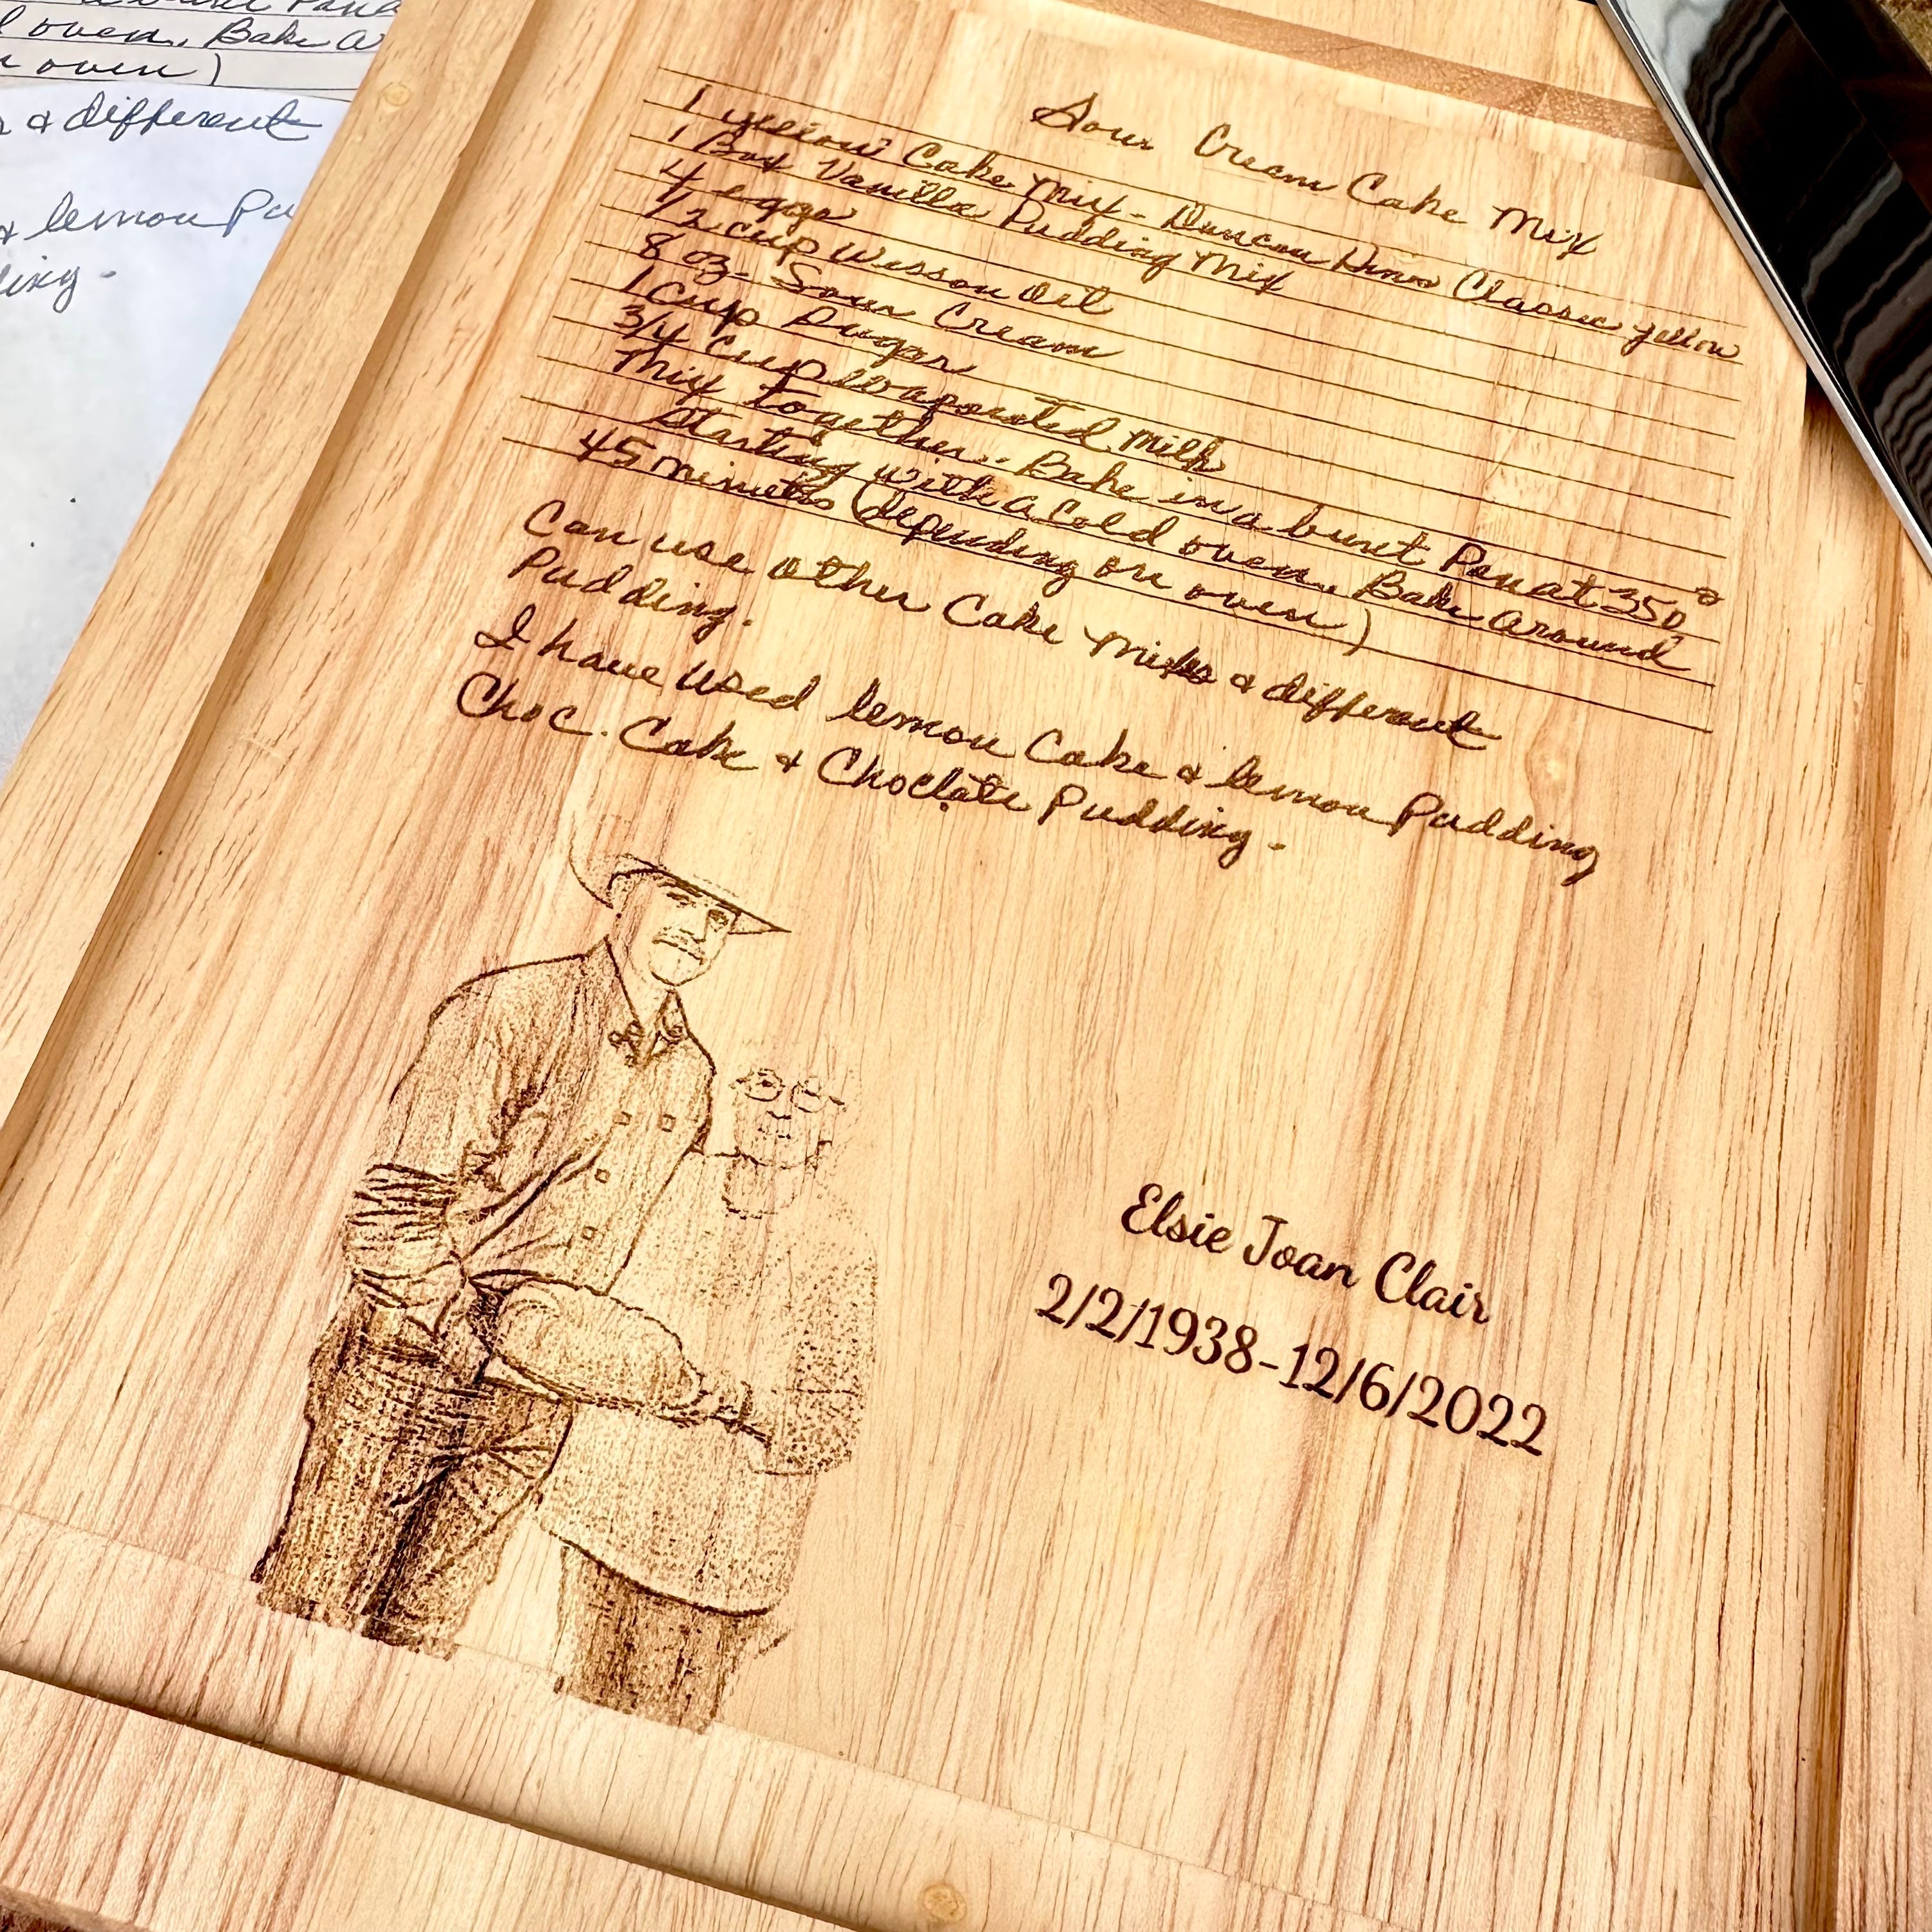 Sour Cream Cake Mix
1 yellow Cake Mix - Duncan Hines Classic yellow
1 Box Vanilla Pudding Mix
4 eggs
1/2 cup Wesson Oil
8 oz. Sour Cream
1 cup Sugar
3/4 cup evaporated Milk
Mix together. Bake in a bunt Pan at 350°
Starting with a cold oven. Bake Around
45 minutes (depending on oven)
Can use other Cake Mixes & different
Pudding.
I have used lemon Cake & lemon Pudding
Choc. Cake & Choclate Pudding.
Elsie Joan Clair
2/2/1938-12/6/2022
oven. Bake A
oven)
& different
& lemon Pu
ing.